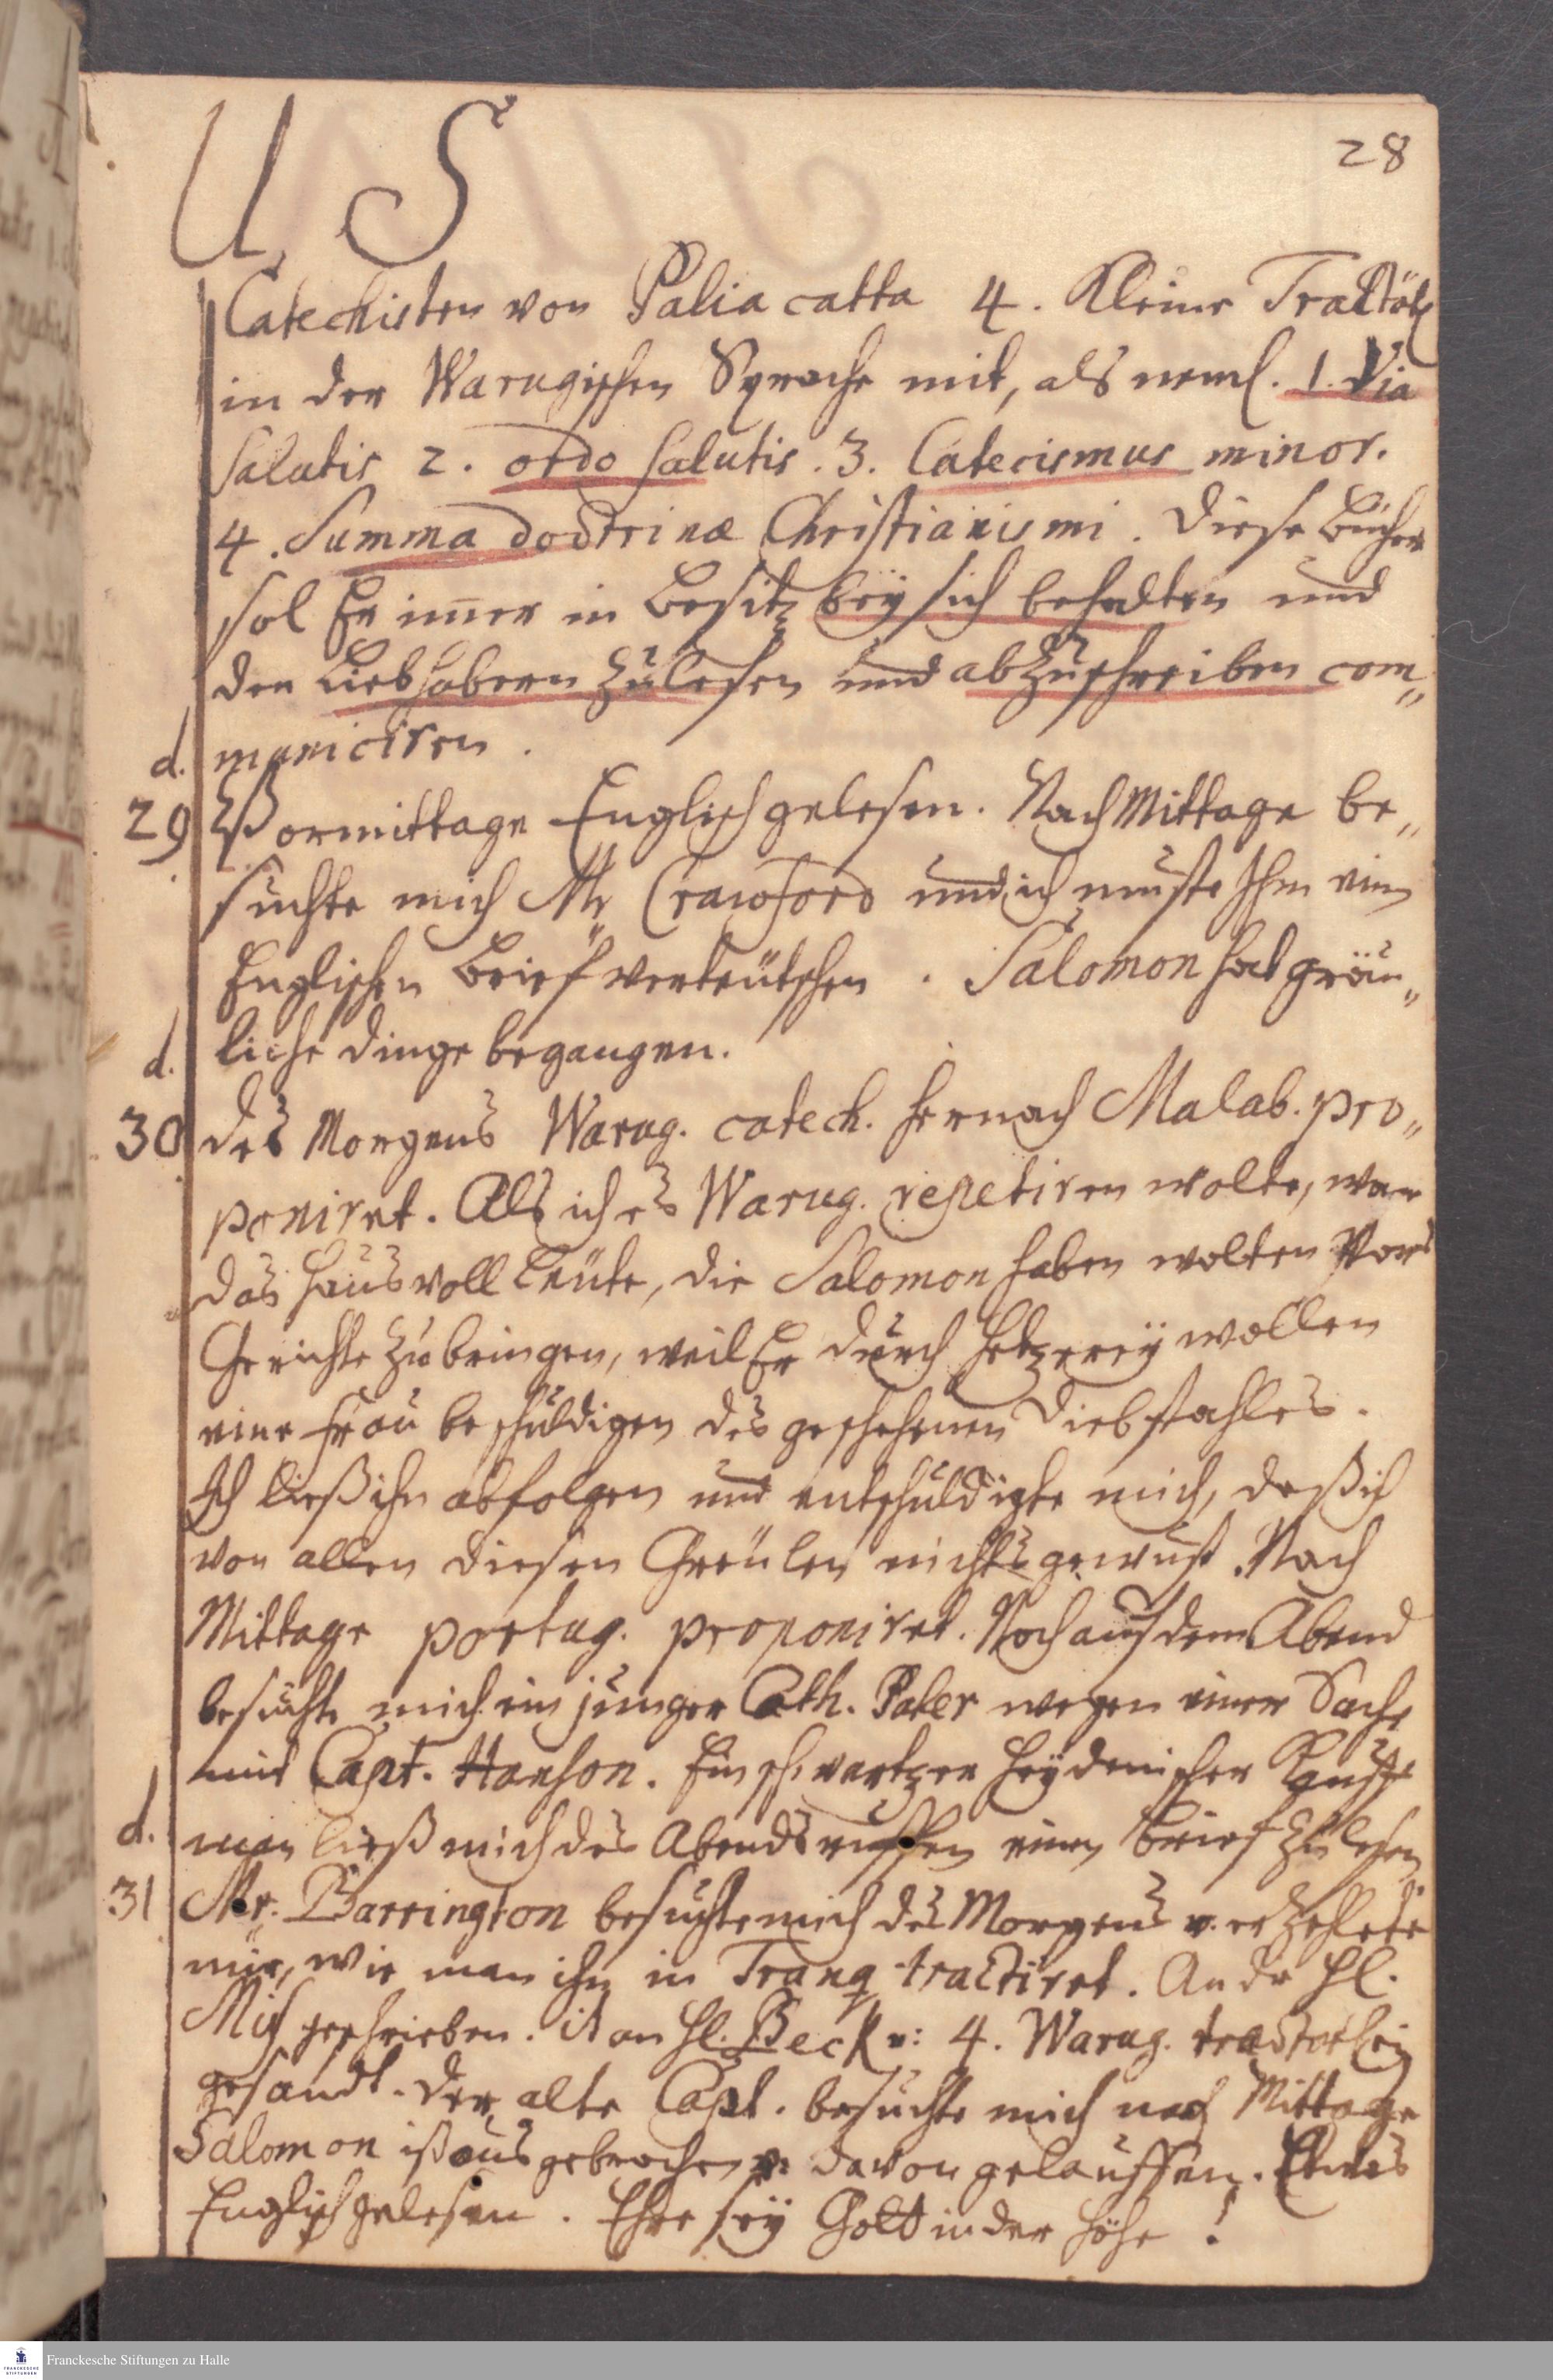 28
U. S
Catechisten von Paliacatta 4. kleine Tractätl
in der Warugischen Sprache mit, als neml. 1. Via
Salutis 2. ordo salutis. 3. Catecismus minor.
4. Summa doctrinæ Christianismi. Diese bücher
sol Er im̄er in besitz beÿ sich behalten und
den Liebhabern zu lesen und abzuschreiben com„
d. municiren.
29 Vormittage Englisch gelesen. Nachmittage be„
suchte mich Mr Crawford und ich muste Ihm einen
Englischen brief verteütschen. Salomon hat gräu„
d. liche dinge begangen.
30 des Morgens Warug. catech. hernach Malab. pro„
poniret. Als ich es Warug. repetiren wolte, war
das hauß voll leüte, die Salomon haben wolten Vors
Gerichte zu bringen, weil Er durch hetzereÿ wollen
eine frau beschuldigen des geschehenen diebstahles.
Ich ließ ihn abfolgen und entschuldigte mich, daß ich
von allen diesen Greülen nichts gewust. Nach
Mittage portug. proponiret. Noch auf dem Abend
besuchte mich ein junger Cath. Pater wegen einer Sache
mit Capt. Hanson. Ein schwartzer heÿdenischer Kauff
d. man ließ mich des Abends ruffen einen brief zu lesen
31 Mr. Barrington besuchte mich des Morgens v. erzehlete
mir, wie man ihn in Tranq. tractiret. An de Hl.
Miss geschrieben. it an Hl. Beck v: 4. Warug. tractätlein
gesandt. Der alte Capt. besuchte mich nach Mittage
Salomon ist ausgebrochen v: davon gelauffen. Etwas
Englisch gelesen. Ehre seÿ Gott in der höhe!
FRANCKESCHE STIFTUNGEN
Franckesche Stiftungen zu Halle